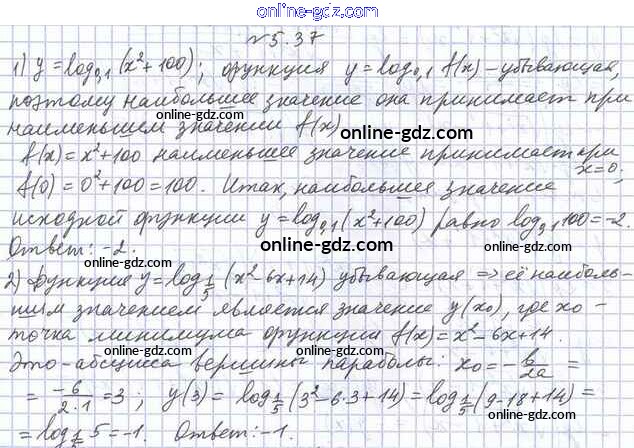 online-gdz.com
№5.37
1) y = log₀,₁ (x² + 100); функция y = log₀,₁ f(x) – убывающая,
поэтому наибольшее значение она принимает при
наименьшем значении f(x)
online-gdz.com
f(x) = x² + 100 наименьшее значение принимает при x = 0;
f(0) = 0² + 100 = 100. Итак, наибольшее значение
online-gdz.com
исходной функции y = log₀,₁ (x² + 100) равно log₀,₁ 100 = -2.
Ответ: -2.
online-gdz.com
2) Функция y = log₁/₅ (x² - 6x + 14) убывающая ⇒ её наиболь-
шим значением является значение y(x₀), где x₀ –
online-gdz.com
точка минимума функции f(x) = x² - 6x + 14.
online-gdz.com
online-gdz.com
Это – абсцисса вершины параболы: x₀ = - b/2a =
= - -6/2·1 = 3; y(3) = log₁/₅ (3² - 6·3 + 14) = log₁/₅ (9 - 18 + 14) =
online-gdz.com
online-gdz.com
= log₁/₅ 5 = -1. Ответ: -1.